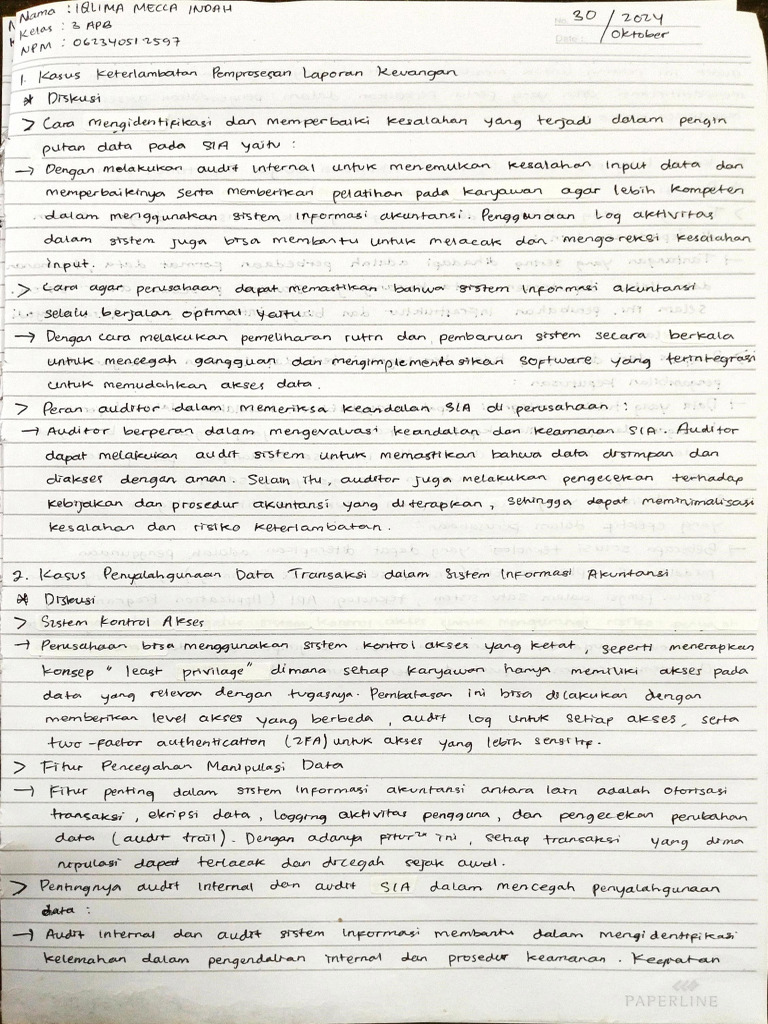 Nama : IQLIMA MECCA INDAH
Kelas : 3 APB
NPM : 062340512597
No. 30 / 2024
Date : Oktober
1. Kasus Keterlambatan Pemprosesan Laporan Keuangan
* Diskusi
> Cara mengidentifikasi dan memperbaiki kesalahan yang terjadi dalam pengin
putan data pada SIA yaitu :
→ Dengan melakukan audit internal untuk menemukan kesalahan input data dan
memperbaikinya serta memberikan pelatihan pada karyawan agar lebih kompeten
dalam menggunakan sistem informasi akuntansi. Penggunaan Log aktivitas
dalam sistem juga bisa membantu untuk melacak dan mengoreksi kesalahan
input.
> Cara agar perusahaan dapat memastikan bahwa sistem informasi akuntansi
selalu berjalan optimal yaitu :
→ Dengan cara melakukan pemeliharan rutin dan pembaruan sistem secara berkala
untuk mencegah gangguan dan mengimplementasikan software yang terintegrasi
untuk memudahkan akses data.
> Peran auditor dalam memeriksa keandalan SIA di perusahaan :
→ Auditor berperan dalam mengevaluasi keandalan dan keamanan SIA. Auditor
dapat melakukan audit sistem untuk memastikan bahwa data disimpan dan
diakses dengan aman. Selain itu, auditor juga melakukan pengecekan terhadap
kebijakan dan prosedur akuntansi yang diterapkan, sehingga dapat meminimalisasi
kesalahan dan risiko keterlambatan.
2. Kasus Penyalahgunaan Data Transaksi dalam Sistem Informasi Akuntansi
* Diskusi
> Sistem Kontrol Akses
→ Perusahaan bisa menggunakan sistem kontrol akses yang ketat, seperti menerapkan
konsep "least privilage" dimana setiap karyawan hanya memiliki akses pada
data yang relevan dengan tugasnya. Pembatasan ini bisa dilakukan dengan
memberikan level akses yang berbeda, audit log untuk setiap akses, serta
two-factor authentication (2FA) untuk akses yang lebih sensitif.
> Fitur Pencegahan Manipulasi Data
→ Fitur penting dalam sistem informasi akuntansi antara lain adalah otorisasi
transaksi, ekripsi data, logging aktivitas pengguna, dan pengecekan perubahan
data (audit trail). Dengan adanya fitur² ini, setiap transaksi yang dima
nipulasi dapat terlacak dan dicegah sejak awal.
> Pentingnya audit internal dan audit SIA dalam mencegah penyalahgunaan
data :
→ Audit internal dan audit sistem informasi membantu dalam mengidentifikasi
kelemahan dalam pengendalian internal dan prosedur keamanan.
PAPERLINE